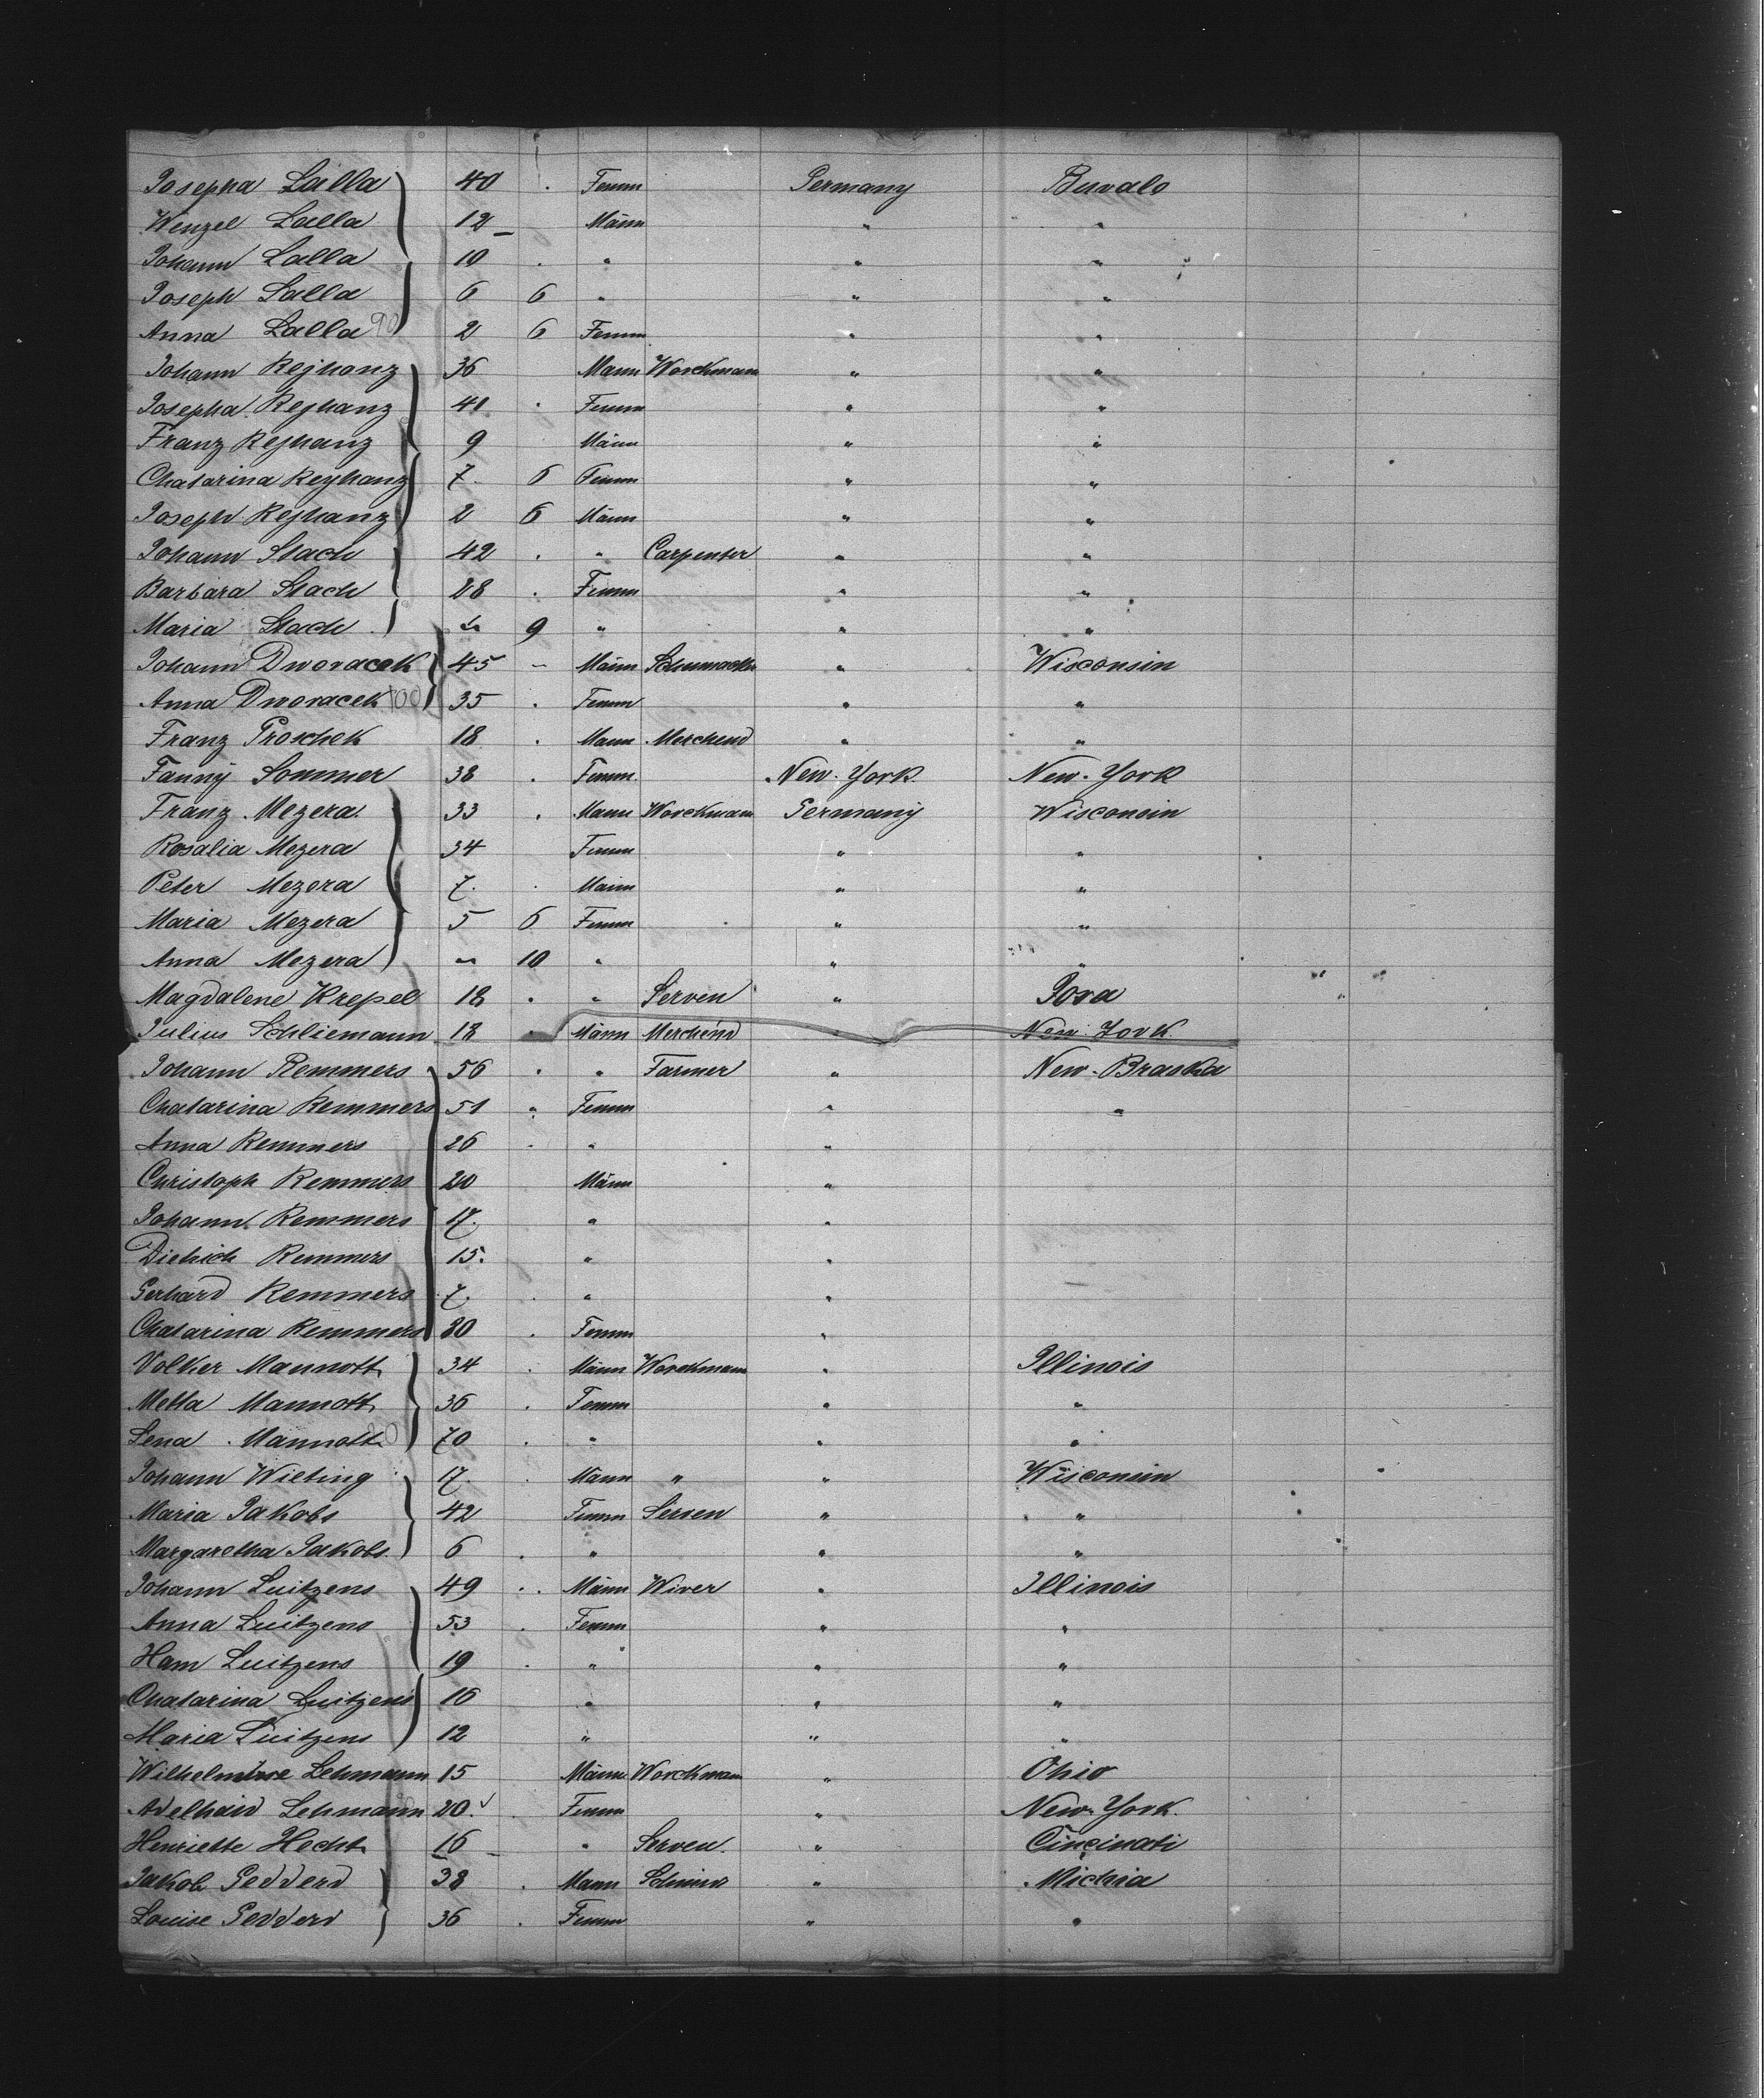 Josepha Lalla 40 . Femm Germany Buvalo
Wenzel Lalla 12 Männ " "
Johann Lalla 10 . " " "
Joseph Lalla 6 6 " " "
Anna Lalla 90 2 6 Femm " "
Johann Rejhanz 36 Mann Worckmann " "
Josepha Rejhanz 41 . Femm " "
Franz Rejhanz 9 Männ " "
Chatarina Rejhanz 7. 6 Femm " "
Joseph Rejhanz 2 6 Männ " "
Johann Stach 42 . " Carpenter " "
Barbara Stach 28 . Femm " "
Maria Stach " 9 " " "
Johann Dworacek 45 - Männ Schumacher " Wisconsin
Anna Dworacek 100 35 . Femm " "
Franz Proschek 18 . Mann Merchend " "
Fanny Sommer 38 . Femm New-York New-York
Franz Mezera 33 . Mann Worckmann Germany Wisconsin
Rosalia Mezera 34 Femm " "
Peter Mezera 7. . Mann " "
Maria Mezera 5 6 Femm " "
Anna Mezera " 10 " " "
Magdalene Krepel 18 . " Serven " Jova
Julius Schliemann 18 Männ Merchend " New York
Johann Remmers 56 . " Farmer " New-Braska
Chatarina Remmers 51 " Femm " "
Anna Remmers 26 . " "
Christoph Remmers 20 Männ "
Johann Remmers 17. " "
Dietrich Remmers 15. " "
Gerhard Remmers 7. . " "
Chatarina Remmers 80 . Femm "
Volker Mannott 34 . Männ Worckmann " Illinois
Metta Mannott 36 . Femm " "
Lena Mannott 70 . " " "
Johann Wieting 17. . Mann " " Wisconsin
Maria Jakobs 42 Femm Serven " "
Margaretha Jakobs 6 . " " "
Johann Luitzens 49 . . Männ Wiver " Illinois
Anna Luitzens 53 . Femm " "
Ham Luitzens 19 . " " "
Chatarina Luitzens 16 " " "
Maria Luitzens 12 " " "
Lehmann 15 Männ Worckman " Ohio
Adelhaid Lehmann 20. Femm " New-York.
Henriette Hecht 16 " Serven. " Cincinati
Jakob Gedderd 38 . Mann " Michia
Louise Gedderd 36 . Femm " "